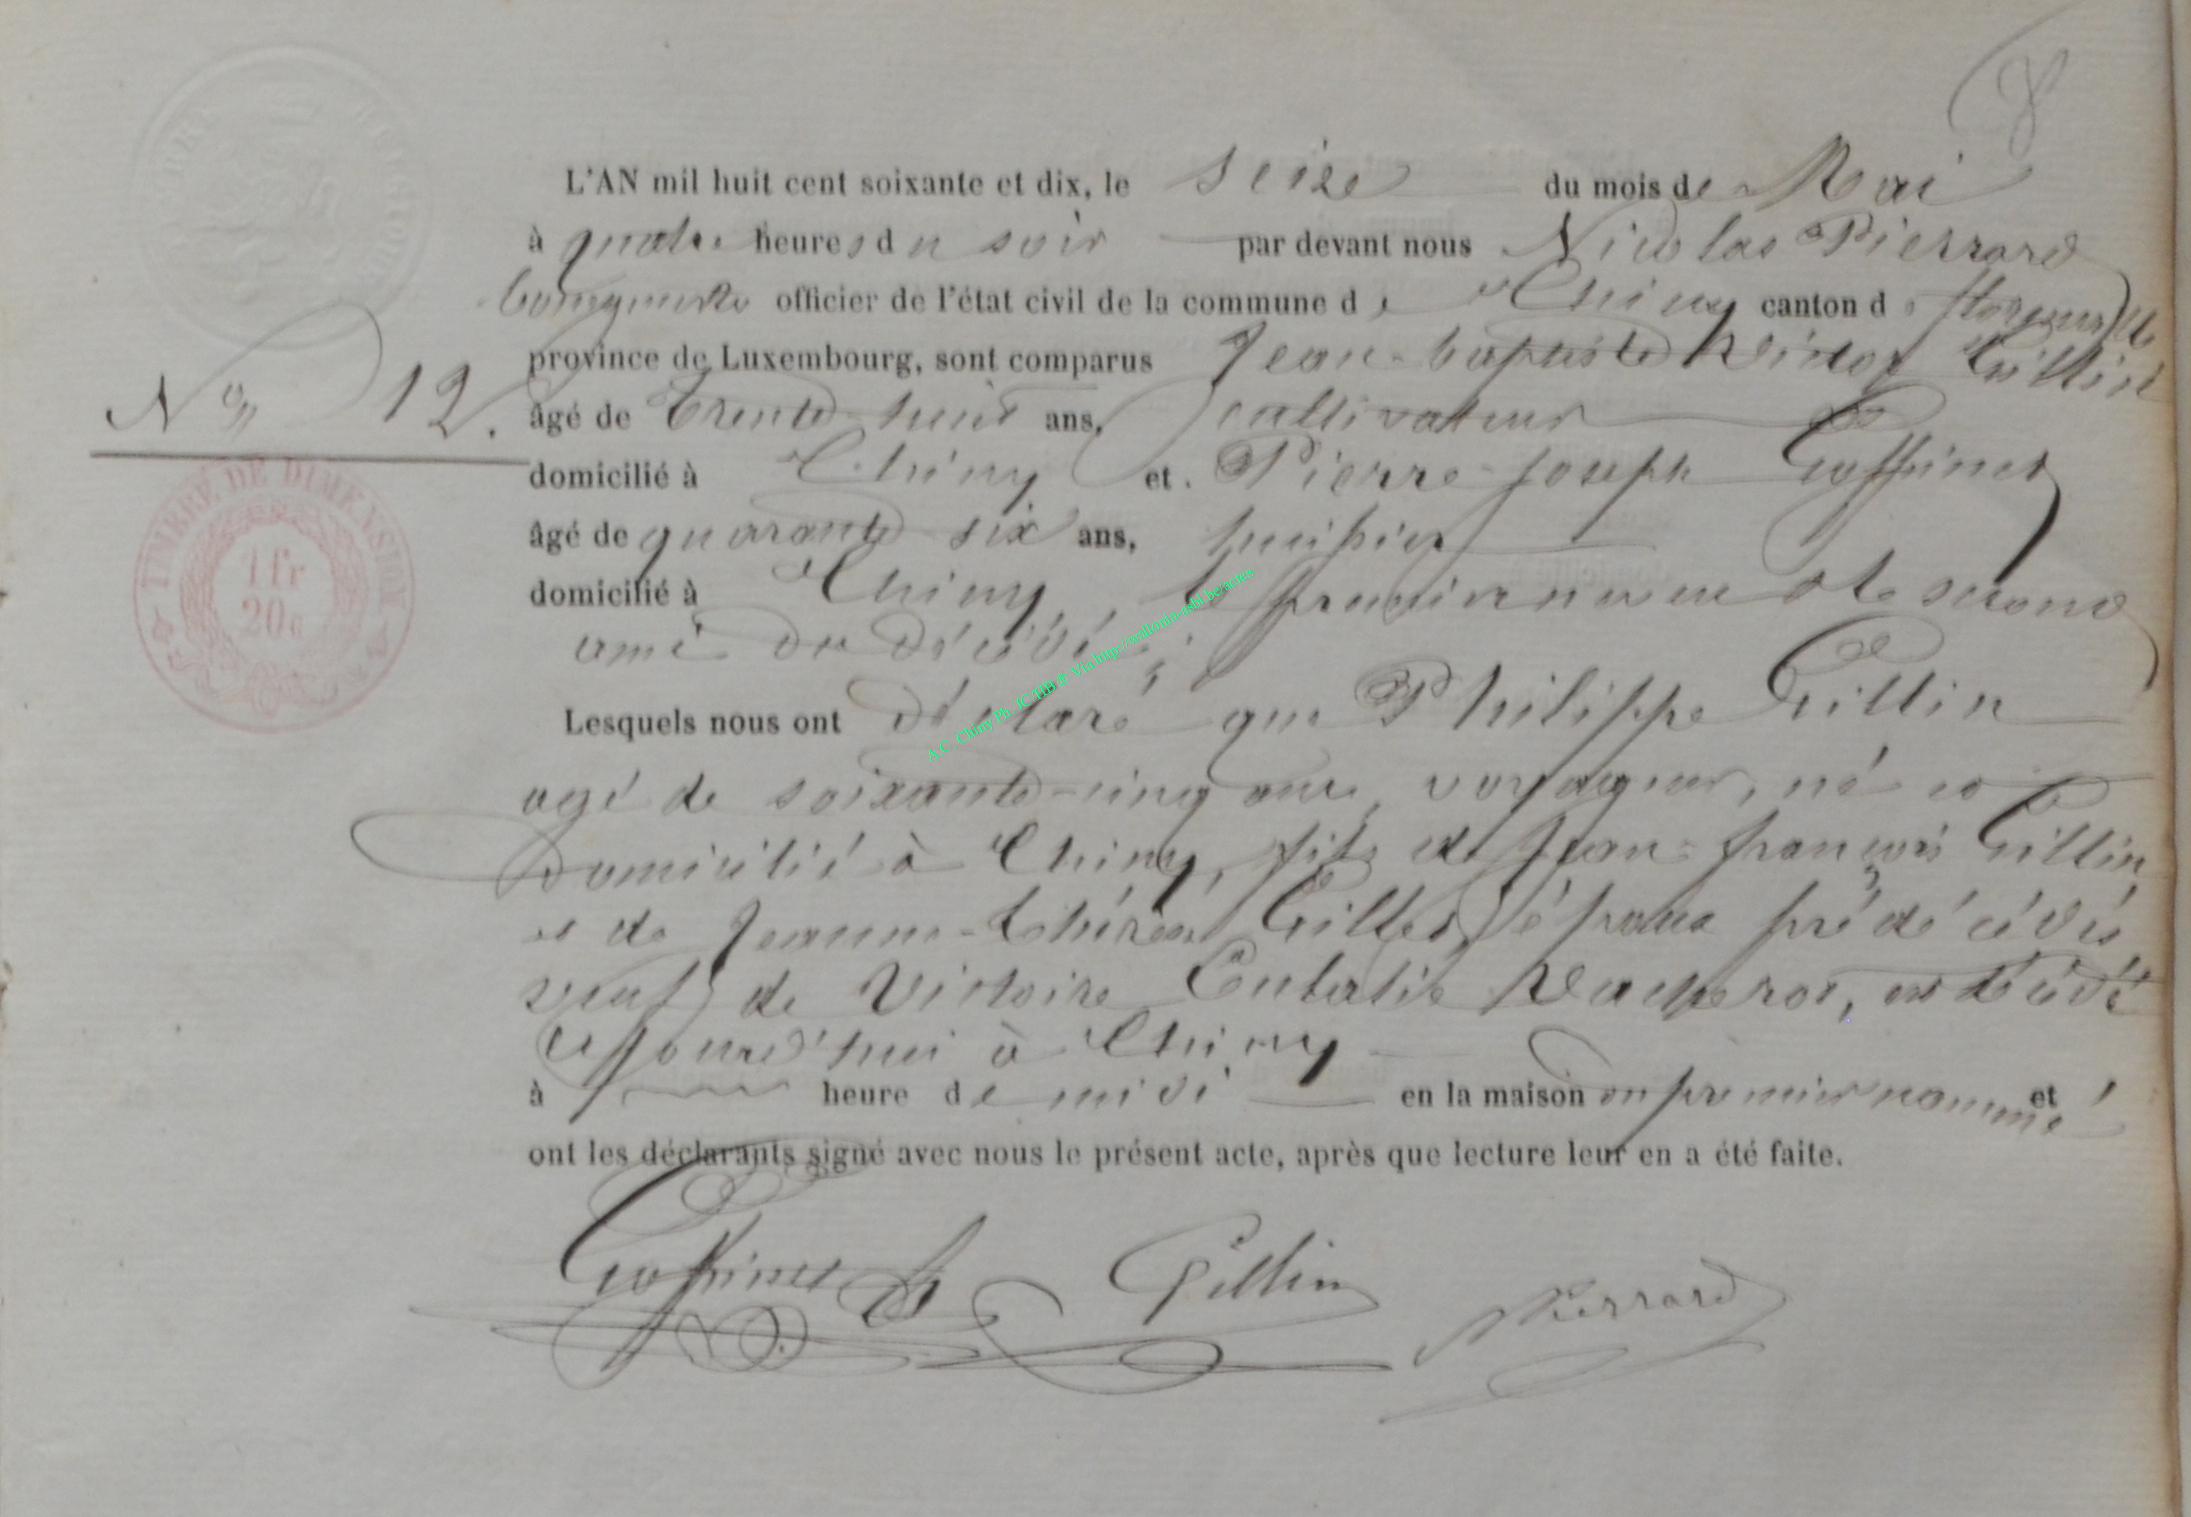 8
L'AN mil huit cent soixante et dix, le seize du mois de Mai
à quatre heures du soir par devant nous Nicolas Pierrard
bourgmestre officier de l'état civil de la commune de Chiny canton de florenville
province de Luxembourg, sont comparus Jean-baptiste Victor Gillin
N° 12.
âgé de trente-huit ans, cultivateur
domicilié à Chiny et. Pierre-Joseph Goffinet
âgé de quarante six ans, huissier
domicilié à Chiny, le premier neveu et le second
ami du décédé;
TIMBRE DE DIMENSION
1 fr
20c
Lesquels nous ont déclaré que Philippe Gillin
agé de soixante-cinq ans, voyageur, né et
domicilié à Chiny, fils de Jean-françois Gillin
et de Jeanne-thérèse Gilles, époux prédécédés
veuf de Victoire Eulalie Vacherot, est décédé
cejourd'hui à Chiny
à heure de midi en la maison du premier nommé et
ont les déclarants signé avec nous le présent acte, après que lecture leur en a été faite.
Goffinet Gillin Pierrard
A.C. Chiny Ph. JC HB & Via http://wallonia-asbl.be/actes